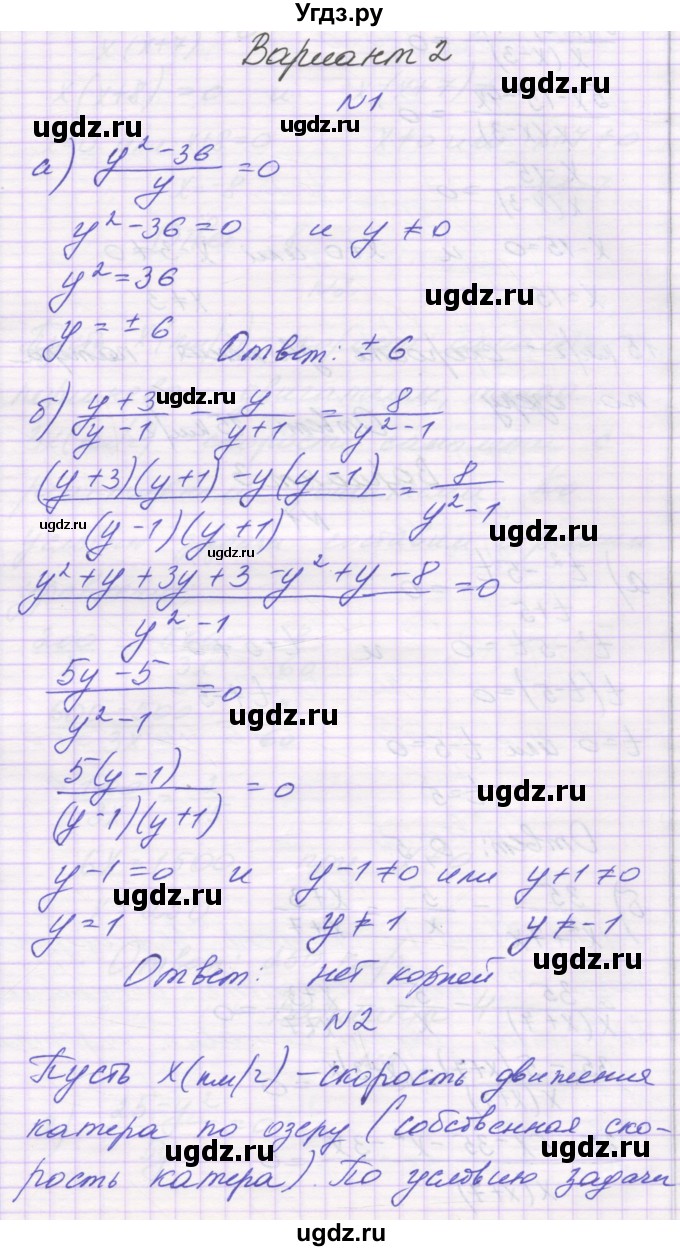 Угдз.ру
Вариант 2
ugdz.ru
ugdz.ru
N1
ugdz.ru
а) (y² - 36)/y = 0
y² - 36 = 0 и y ≠ 0
y² = 36
ugdz.ru
y = ± 6
Ответ: ± 6
ugdz.ru
б) (y + 3)/(y - 1) - y/(y + 1) = 8/(y² - 1)
((y + 3)(y + 1) - y(y - 1))/((y - 1)(y + 1)) = 8/(y² - 1)
ugdz.ru
ugdz.ru
ugdz.ru
(y² + y + 3y + 3 - y² + y - 8)/(y² - 1) = 0
(5y - 5)/(y² - 1) = 0
ugdz.ru
5(y - 1)/((y - 1)(y + 1)) = 0
ugdz.ru
y - 1 = 0 и y - 1 ≠ 0 или y + 1 ≠ 0
ugdz.ru
y = 1 y ≠ 1 y ≠ -1
ugdz.ru
Ответ: нет корней
N2
Пусть x(км/ч) - скорость движения
катера по озеру (собственная ско-
ugdz.ru
ugdz.ru
рость катера). По условию задачи
ugdz.ru